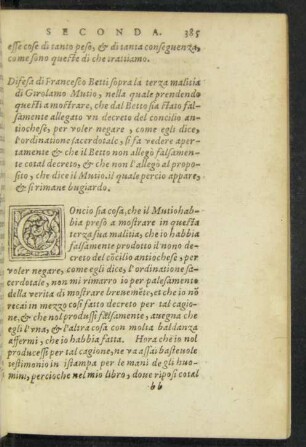 SECONDA. 385
esse cose di tanto peso, & di tanta conseguenza,
come sono queste di che trattiamo.
Difesa di Francesco Betti sopra la terza malitia
di Girolamo Mutio, nella quale prendendo
questi a mostrare, che dal Betto sia stato fal-
samente allegato vn decreto del concilio an-
tiochese, per voler negare, come egli dice,
l'ordinatione sacerdotale, si fa vedere aper-
tamente & che il Betto non allegò falsamen-
te cotal decreto, & che non l'allegò al propo-
sito, che dice il Mutio. il quale percio appare,
& si rimane bugiardo.
COncio sia cosa, che il Mutio hab-
bia preso a mostrare in questa
terza sua malitia, che io habbia
falsamente prodotto il nono de-
creto del cōcilio antiochese, per
voler negare, come egli dice, l'ordinatione sa-
cerdotale, non mi rimarro io per palesamento
della verita di mostrare breuemēte, et che io nō
recai in mezzo così fatto decreto per tal cagio-
ne, & che nol produssi falsamente, auegna che
egli l'vna, & l'altra cosa con molta baldanza
affermi, che io habbia fatta. Hora che io nol
producessi per tal cagione, ne va assai basteuole
testimonio in istampa per le mani de gli huo-
mini, percioche nel mio libro, doue riposi cotal
bb